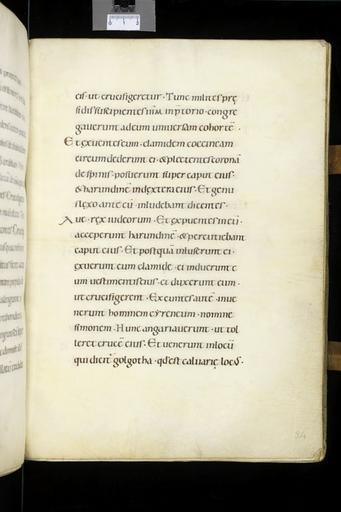 eis· ut crucifigeretur· Tunc milites prę
sidis suscipientes ihm in p̄torio· congre
gaverunt ad eum universam cohortē·
Et exeuntes eum· clamidem coccineam
circumdederunt ei· & plectentes coronā
de spinis· posuerunt super caput eius·
& harundinē in dextera eius· Et genu
flexo ante eū· inludebant dicentes·
Ave· rex iudeorum· Et expuentes in eū·
acceperunt harundinē· & percutiebant
caput eius· Et postquā inluserunt ei·
exuerunt eum clamide· et induerunt e
um vestimentis eius· et duxerunt eum·
ut crucifigerent· Exeuntes autē· inve
nerunt hominem cyreneum· nomine
simonem· Hunc angariaverunt· ut tol
leret crucē eius· Et venerunt in locū
qui dicit̄ golgotha· qđ est calvarię locus·